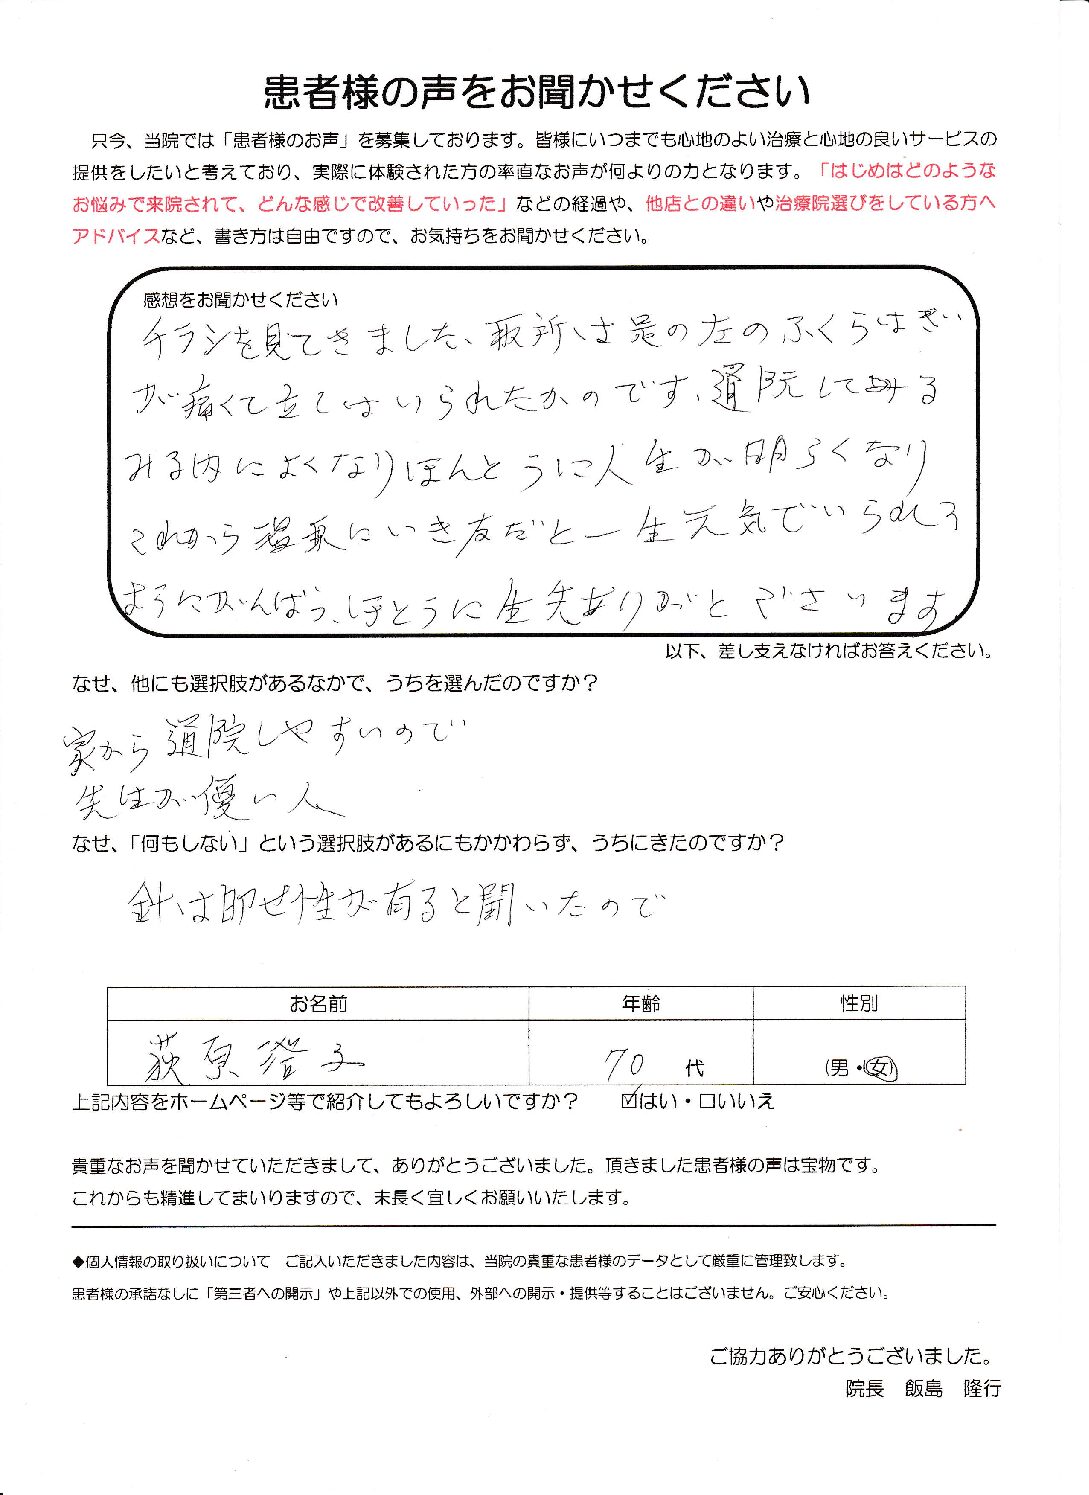 患者様の声をお聞かせください
只今、当院では「患者様のお声」を募集しております。皆様にいつまでも心地のよい治療と心地の良いサービスの
提供をしたいと考えており、実際に体験された方の率直なお声が何よりの力となります。「はじめはどのような
お悩みで来院されて、どんな感じで改善していった」などの経過や、他店との違いや治療院選びをしている方へ
アドバイスなど、書き方は自由ですので、お気持ちをお聞かせください。
感想をお聞かせください
チラシを見てきました、最所は足の左のふくらはぎい
が痛くて立てはいられたかのです、通院してみる
みる内によくなりほんとうに人生が明らくなり
これから温泉にいき友だと一生元気でいられる
ようにがんばう、ほとうに先生ありがと ございます
以下、差し支えなければお答えください。
なぜ、他にも選択肢があるなかで、うちを選んだのですか？
家から通院しやすいので
先生が優い人
なぜ、「何もしない」という選択肢があるにもかかわらず、うちにきたのですか？
針は即せ性が有ると聞いたので
お名前 年齢 性別
荻原澄子 70 代 (男・女)
上記内容をホームページ等で紹介してもよろしいですか？ ☑はい・□いいえ
貴重なお声を聞かせていただきまして、ありがとうございました。頂きました患者様の声は宝物です。
これからも精進してまいりますので、末長く宜しくお願いいたします。
◆個人情報の取り扱いについて ご記入いただきました内容は、当院の貴重な患者様のデータとして厳重に管理致します。
患者様の承諾なしに「第三者への開示」や上記以外での使用、外部への開示・提供等することはございません。ご安心ください。
ご協力ありがとうございました。
院長 飯島 隆行